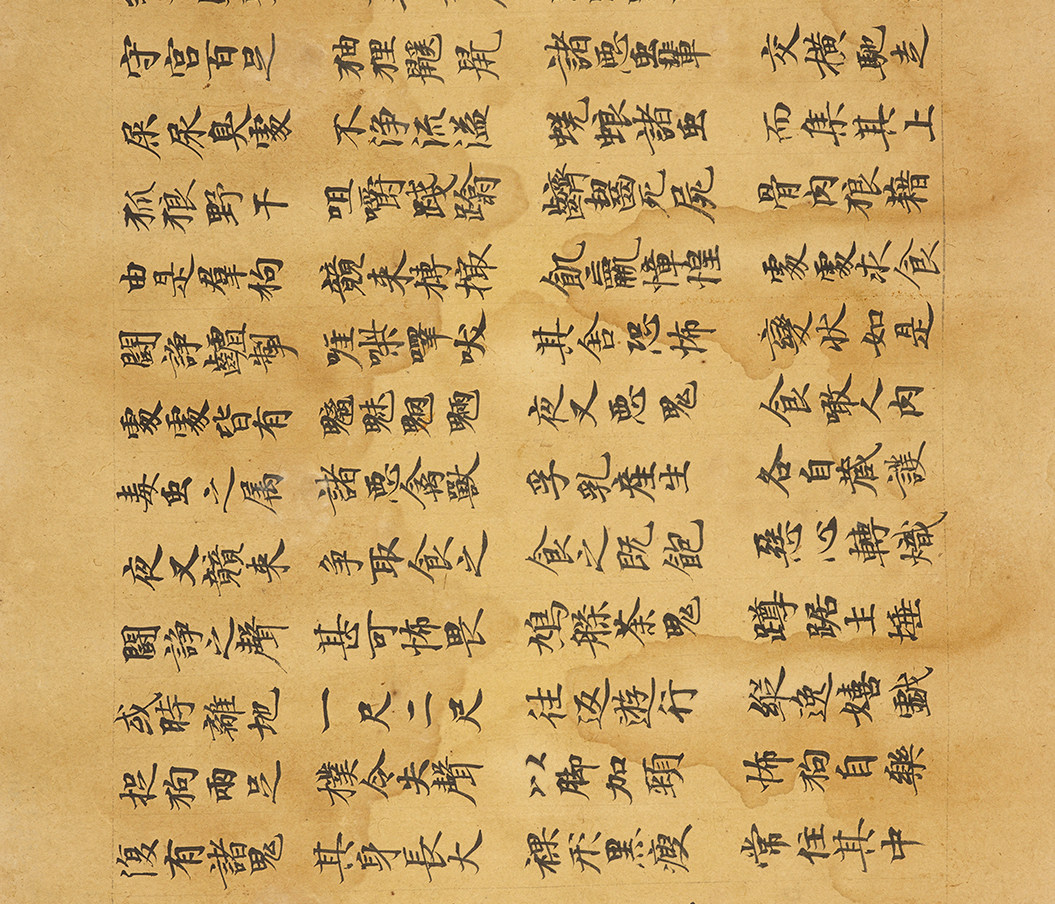 守宮百足 狖狸鼷鼠 諸惡虫輩 交橫馳走
屎尿臭處 不淨流溢 蜣蜋諸虫 而集其上
狐狼野干 咀嚼踐蹋 齧死屍 骨肉狼藉
由是羣狗 競来搏撮 飢羸慞惶 處處求食
鬪諍掣 啀喍嘷吠 其舍恐怖 變状如是
處處皆有 魑魅魍魎 夜叉惡鬼 食噉人肉
毒虫之属 諸惡禽獸 孚乳産生 各自藏護
夜叉競来 争取食之 食之既飽 惡心轉熾
鬪諍之聲 甚可怖畏 鳩槃荼鬼 蹲踞土埵
或時離地 一尺二尺 往返遊行 縱逸嬉戲
捉狗兩足 撲令失聲 以脚加頸 怖狗自樂
復有諸鬼 其身長大 裸形黑瘦 常住其中